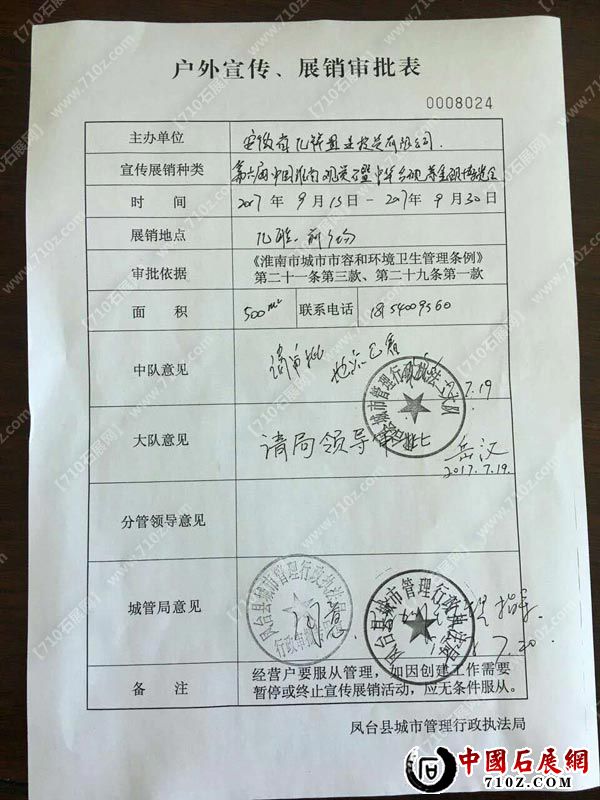 户外宣传、展销审批表
0008024
主办单位
安徽省 投资有限公司
宣传展销种类 第六届中国淮南观赏石暨中华
时　间 2017 年 9 月 15日 - 2017年 9 月 30日
展销地点 前广场
审批依据 《淮南市城市市容和环境卫生管理条例》
第二十一条第三款、第二十九条第一款
面　积 500m² 联系电话
中队意见 请审批
7.19
城市管理行政执法
大队意见 请局领导审批
2017.7.19.
分管领导意见
城管局意见 同意 指导
7.20
凤台县城市管理行政执法局
行政审批
凤台县城市管理行政执法局
备　注 经营户要服从管理，如因创建工作需要
暂停或终止宣传展销活动，应无条件服从。
凤台县城市管理行政执法局
中國石展網
710Z.COM
【710石展网】
www.710z.com